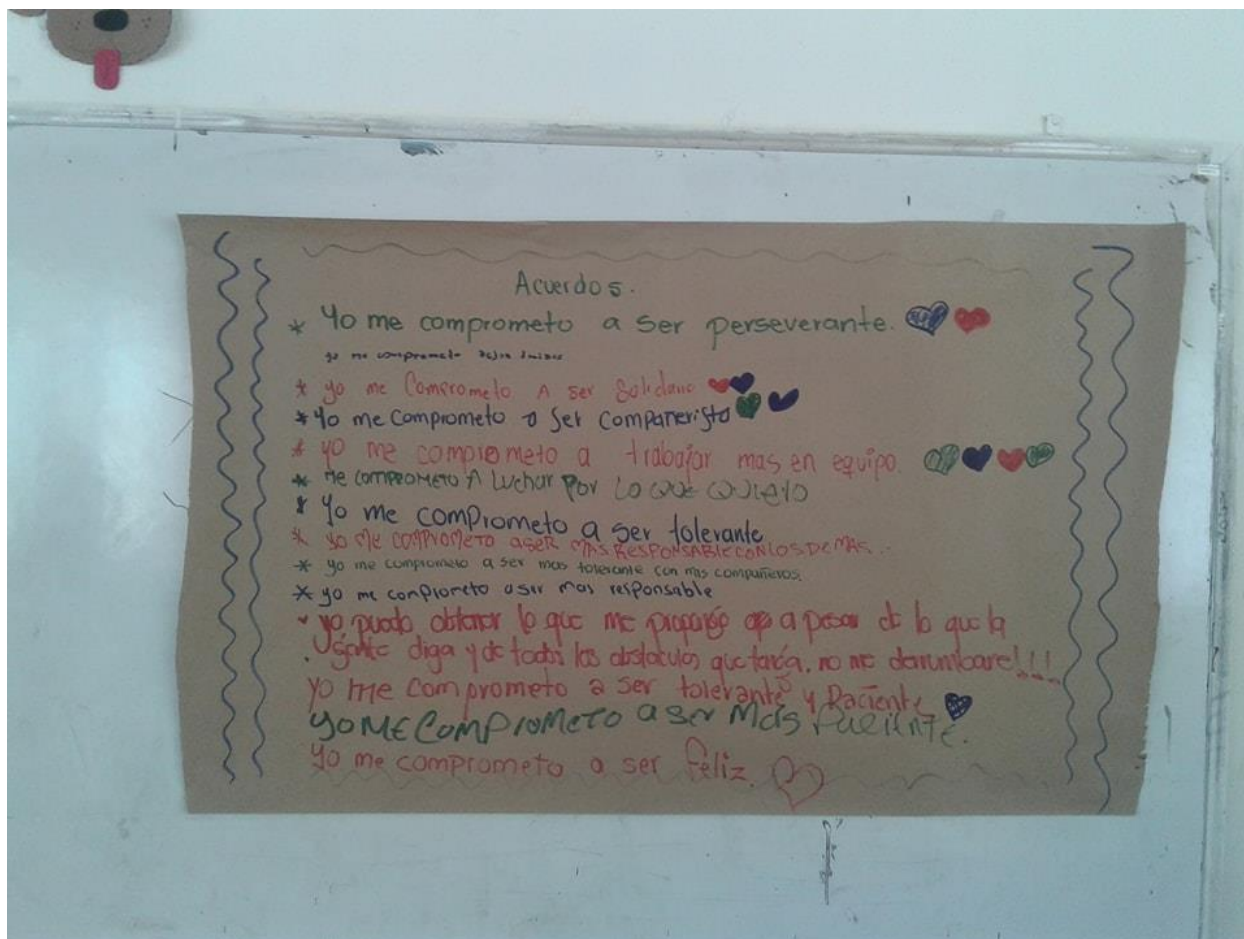 Acuerdos.
* Yo me comprometo a ser perseverante.
yo me comprometo
* yo me Comprometo A ser Solidario
* Yo me comprometo a ser compañerista
* yo me comprometo a trabajar mas en equipo.
* Me comprometo A Luchar Por Lo QUE QUIERO
* Yo me comprometo a ser tolerante
* yo me comprometo a ser MAS RESPONSABLE CON LOS DEMAS...
* yo me comprometo a ser mas tolerante con mis compañeros.
* yo me comprometo a ser mas responsable
yo puedo obtener lo que me propongo a pesar de lo que la
gente diga y de todos los obstaculos que tenga. no me derrumbare!!!
yo me comprometo a ser tolerante y Paciente
yo ME COMPROMETO a ser Más Paciente.
Yo me comprometo a ser feliz.